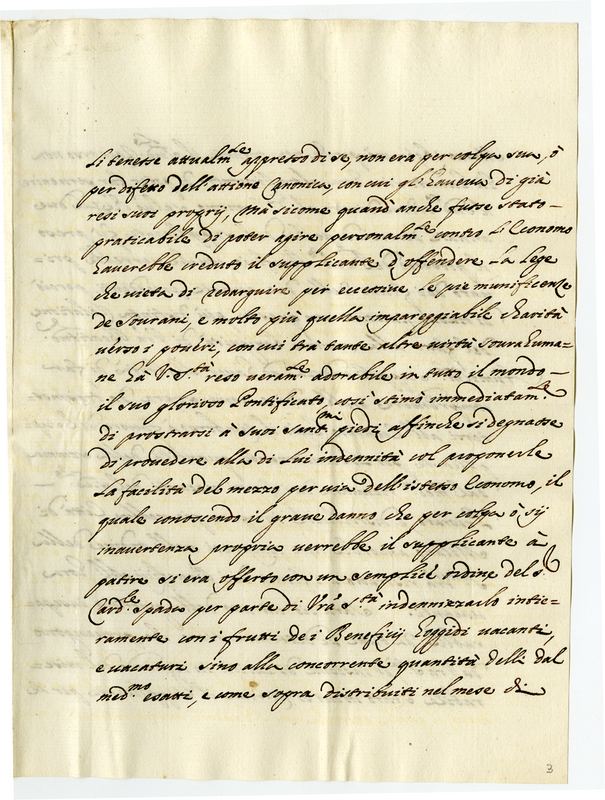 li tenesse attualm.te appresso di se, non era per colpa sua, ò
per difetto dell'attione Canonica, con cui gl'haveva di già
resi suoi proprij, Mà sicome quand'anche fusse stato -
praticabile di poter agire personalm.te contro l'Economo
haverebbe creduto il supplicante d'offendere la lege
che vieta di redarguire per eccessive le pie munificenze
de Sourani, e molto più quella impareggiabile charità
verso i poveri, con cui trà tante altre virtù sourahuma-
ne hà V. S.tà reso veram.te adorabile in tutto il mondo -
il suo glorioso Pontificato, così stimò immediatam.te
di prostrarsi à suoi Sant.mi piedi affinche si degnasse
di provedere alla di lui indennità col proponerle
la facilità del mezzo per via dell'istesso Economo, il
quale conoscendo il grave danno che per colpa ò sij
inavertenza propria verrebbe il supplicante à
patire si era offerto con un semplice ordine del S.
Card.le Spada per parte di Vrà S.tà indennizarlo intie-
ramente con i frutti de i Beneficij hoggidi vacanti,
e vacaturi sino alla concorrente quantità delli dal
med.mo esatti, e come sopra distribuiti nel mese di
3